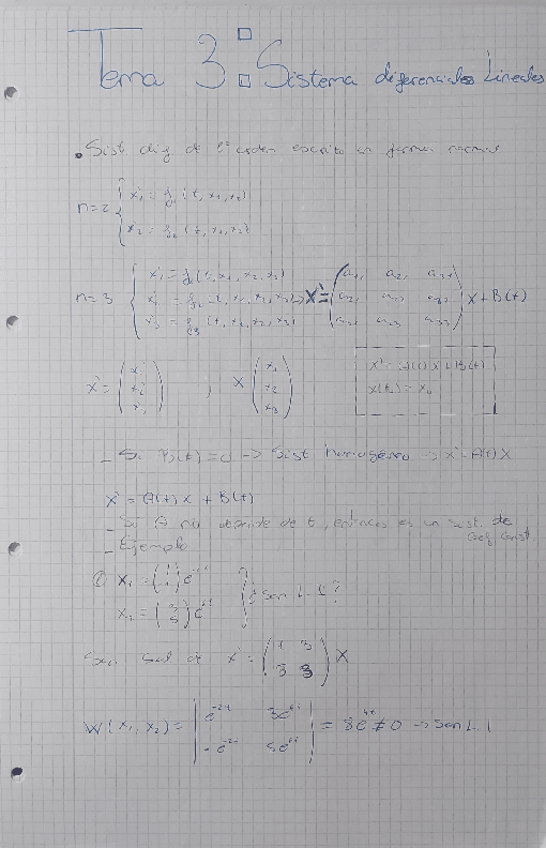 Tema 3: Sistema diferenciales Lineales
• Sist. dif. de 1er orden escrito en forma normal
n=2 { x'1 = f1 (t, x1, x2)
x'2 = f2 (t, x1, x2)
n=3 { x'1 = f1 (t, x1, x2, x3)
x'2 = f2 (t, x1, x2, x3) → X' = ( ) X + B(t)
x'3 = f3 (t, x1, x2, x3)
X' = (x'1 x'2 x'3) ; X (x1 x2 x3)
X' = A(t) X + B(t)
x(t0) = x0
- Si B(t) = 0 -> Sist homogéneo -> X' = A(t) X
X' = A(t) X + B(t)
- Si A no depende de t, entonces es un sist. de coef. const.
- Ejemplo
x1 = ( ) e^-2t
x2 = (3 5) e^6t } ¿Son L.I.?
Sol de X' = ( 1 3 ) X
W(x1, x2) = | e^-2t 3e^6t |
| -e^-2t 5e^6t | = 8e^4t ≠ 0 -> Son L.I